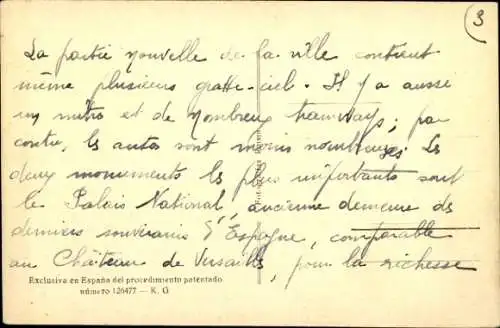 3
La partie nouvelle de la ville contient
même plusieurs gratte-ciel. Il y a aussi
un métro et de nombreux tramways; par
contre, les autos sont moins nombreuses. Les
deux monuments les plus importants sont
le Palais National, ancienne demeure des
derniers souverains d'Espagne, comparable
au Château de Versailles, pour la richesse
Exclusiva en España del procedimiento patentado
número 126477 — K. G